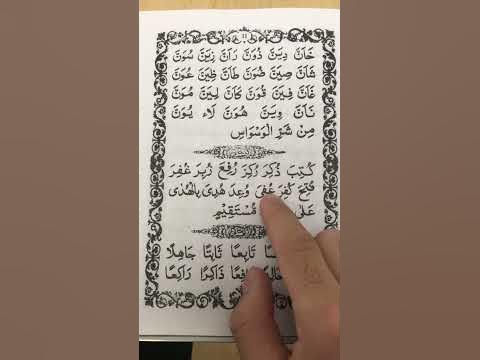 ١١
خَانَ دِينَ ذُونَ رَانَ زِينَ سُونَ
شَانَ صِينَ ضُونَ طَانَ ظِينَ عُونَ
غَانَ فِينَ قُونَ كَانَ لِينَ مُونَ
نَانَ وِينَ هُونَ لَاء يُونَ
مِنْ شَرِّ الْوَسْوَاسِ
كُتِبَ ذُكِرَ رُكِزَ رُفِعَ زُبِرَ غُفِرَ
فُتِحَ كُفِرَ عُفِيَ وُعِدَ هُدِيَ بِالْهُدٰى
عَلٰى مُسْتَقِيمٍ
تَابِعًا ثَابِتًا جَاهِلًا
ذَاكِرًا رَاكِعًا